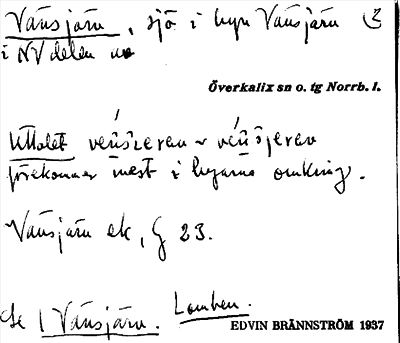 Vänsjärv, sjö i byn Vänsjärv
i NV delen av
Överkalix sn o. tg Norrb. l.
Uttalet
förekommer mest i byarna omkring.
Vänsjärv ek, G 23.
Se Vänsjärv. Lomben.
EDVIN BRÄNNSTRÖM 1937